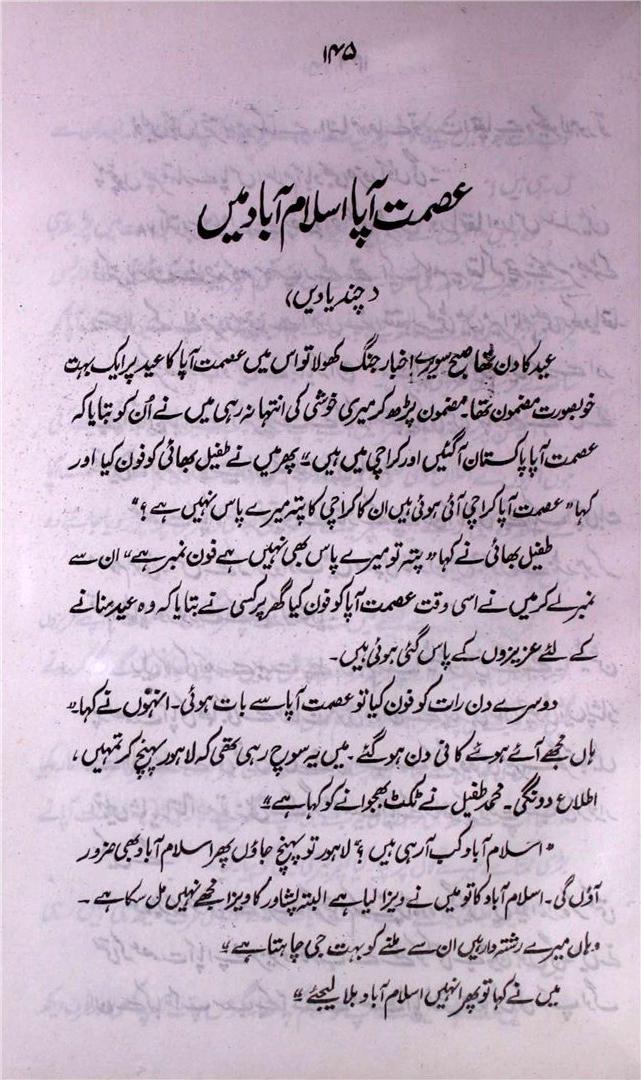 ۱۴۵
عصمت آپا اسلام آباد میں
(چند یادیں)
عید کا دن تھا صبح سویرے اخبار جنگ کھولا تو اس میں عصمت آپا کا عید پر ایک بہت
خوبصورت مضمون تھا۔ مضمون پڑھ کر میری خوشی کی انتہا نہ رہی میں نے اُن کو بتایا کہ
عصمت آپا پاکستان آگئیں اور کراچی میں ہیں" پھر میں نے طفیل بھائی کو فون کیا اور
کہا "عصمت آپا کراچی آئی ہوئی ہیں ان کا کراچی کا پتہ میرے پاس نہیں ہے؟"
طفیل بھائی نے کہا "پتہ تو میرے پاس بھی نہیں ہے فون نمبر ہے" ان سے
نمبر لے کر میں نے اسی وقت عصمت آپا کو فون کیا گھر پر کسی نے بتایا کہ وہ عید منانے
کے لئے عزیزوں کے پاس گئی ہوئی ہیں۔
دوسرے دن رات کو فون کیا تو عصمت آپا سے بات ہوئی۔ انہوں نے کہا "
ہاں مجھے آئے ہوئے کافی دن ہو گئے۔ میں یہ سوچ رہی تھی کہ لاہور پہنچ کر تمہیں،
اطلاع دونگی۔ محمد طفیل نے ٹکٹ بھجوانے کو کہا ہے"
"اسلام آباد کب آ رہی ہیں؟" لاہور تو پہنچ جاؤں پھر اسلام آباد بھی ضرور
آؤں گی۔ اسلام آباد کا تو میں نے ویزا لیا ہے البتہ پشاور کا ویزا مجھے نہیں مل سکا ہے۔
وہاں میرے رشتہ دار ہیں ان سے ملنے کو بہت جی چاہتا ہے"
میں نے کہا تو پھر انہیں اسلام آباد بلا لیجئے"